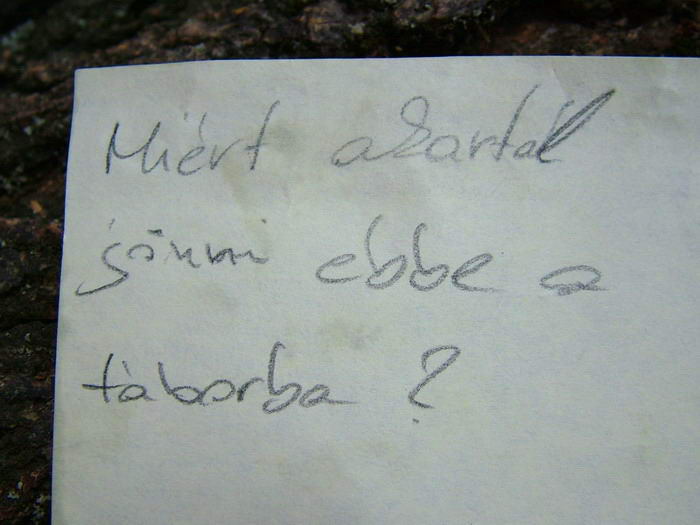 Miért akartál
jönni ebbe a
táborba ?